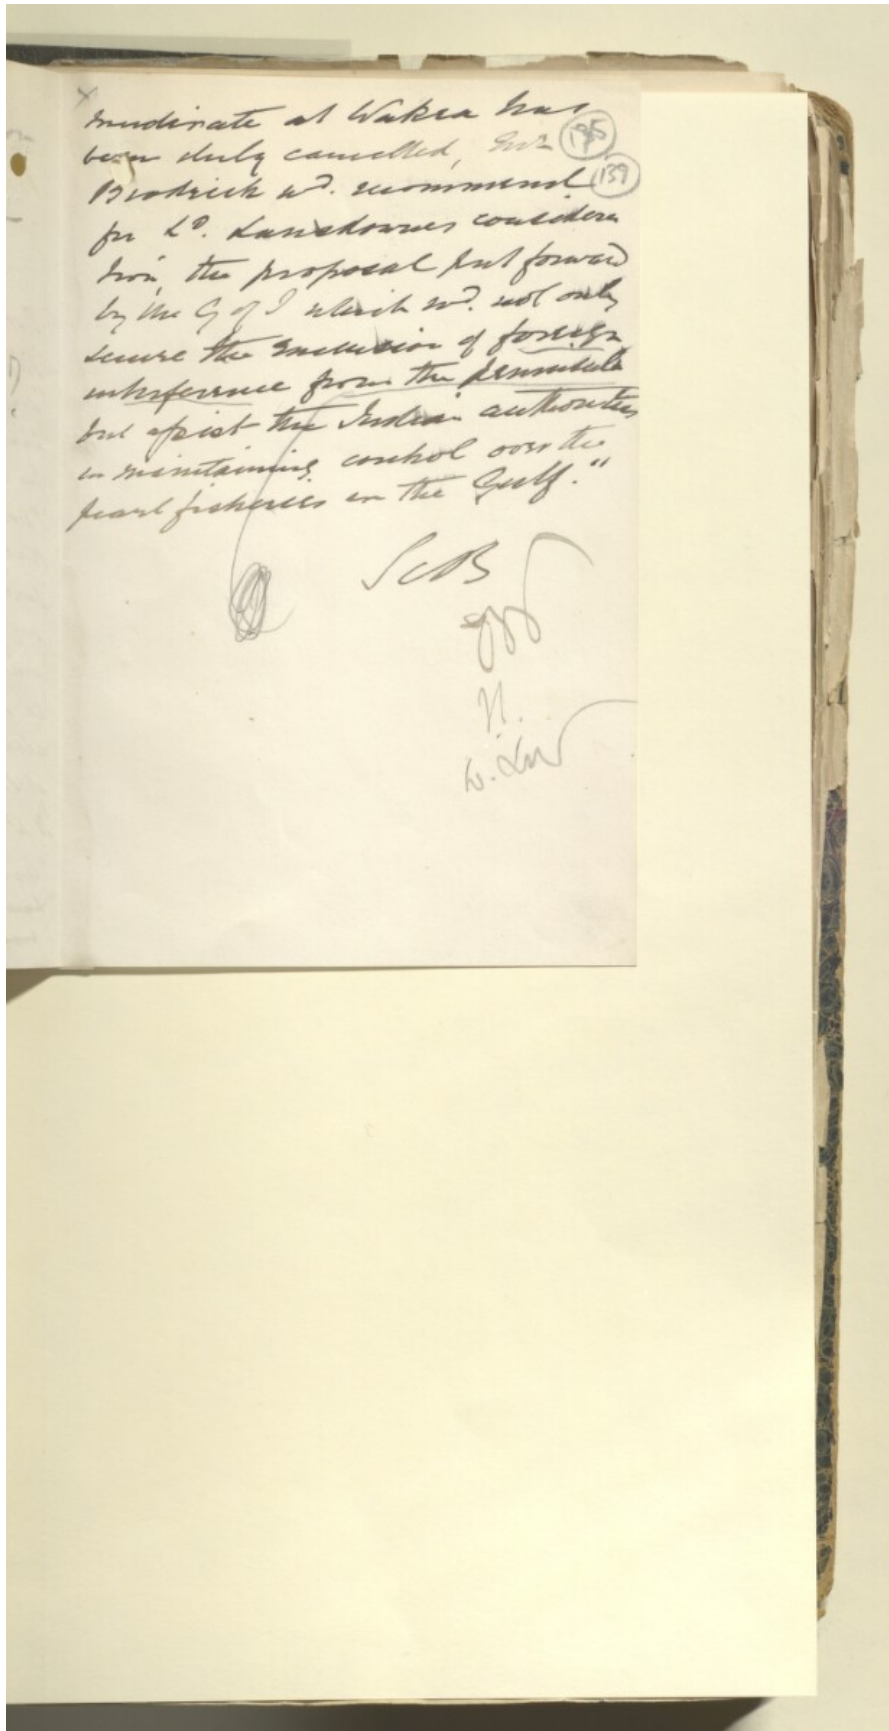 X
mudirate at Wakra has
been duly cancelled, Mr
195
Brodrick wd. recommend
139
for Ld. Lansdownes considera
tion, the proposal put forward
by the G of I which wd. not only
secure the exclusion of foreign
interference from the peninsula
but assist the Indian authorities
in maintaining control over the
pearl fisheries in the Gulf."
SCB
H.
W. Lw